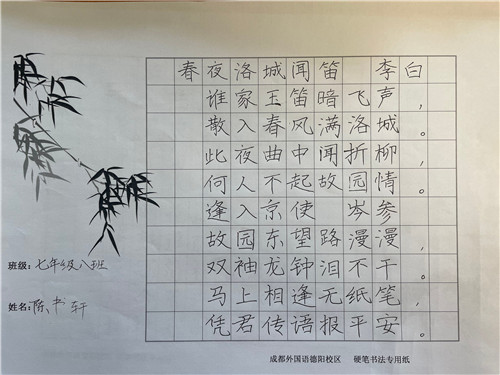 春夜洛城闻笛 李白
谁家玉笛暗飞声，
散入春风满洛城。
此夜曲中闻折柳，
何人不起故园情。
逢入京使 岑参
故园东望路漫漫，
双袖龙钟泪不干。
马上相逢无纸笔，
凭君传语报平安。
班级：七年级八班
姓名：陈书轩
成都外国语德阳校区 硬笔书法专用纸